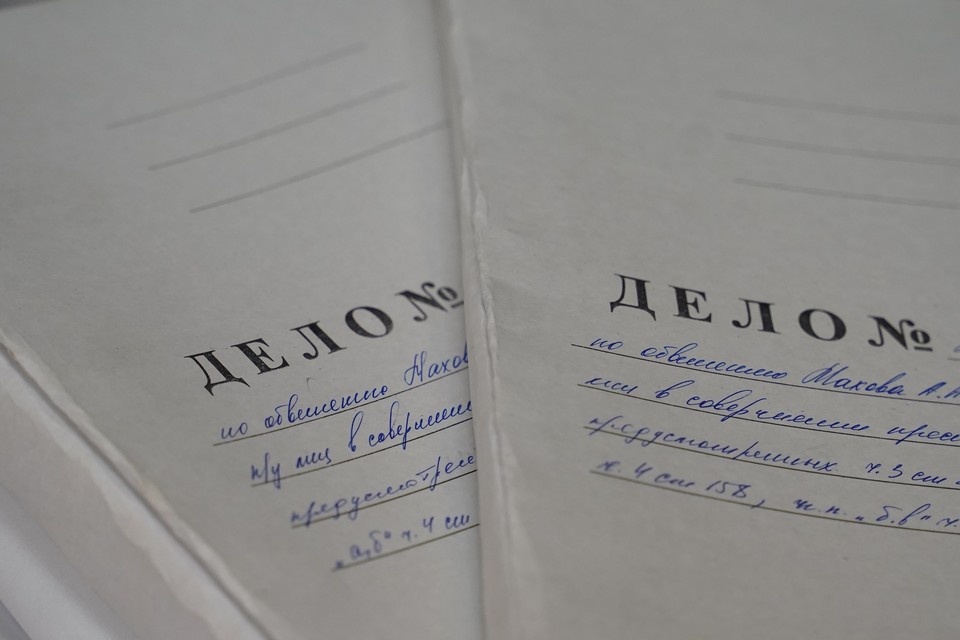 ДЕЛО №
по обвинению Махов
пр/у лиц в совершении
предусмотрен
"а,б" ч. 4 ст
ДЕЛО №
по обвинению Махова А.А
лиц в совершении прес
предусмотренных ч. 3 ст
ч. 4 ст 158, п.п. "б,в" ч.